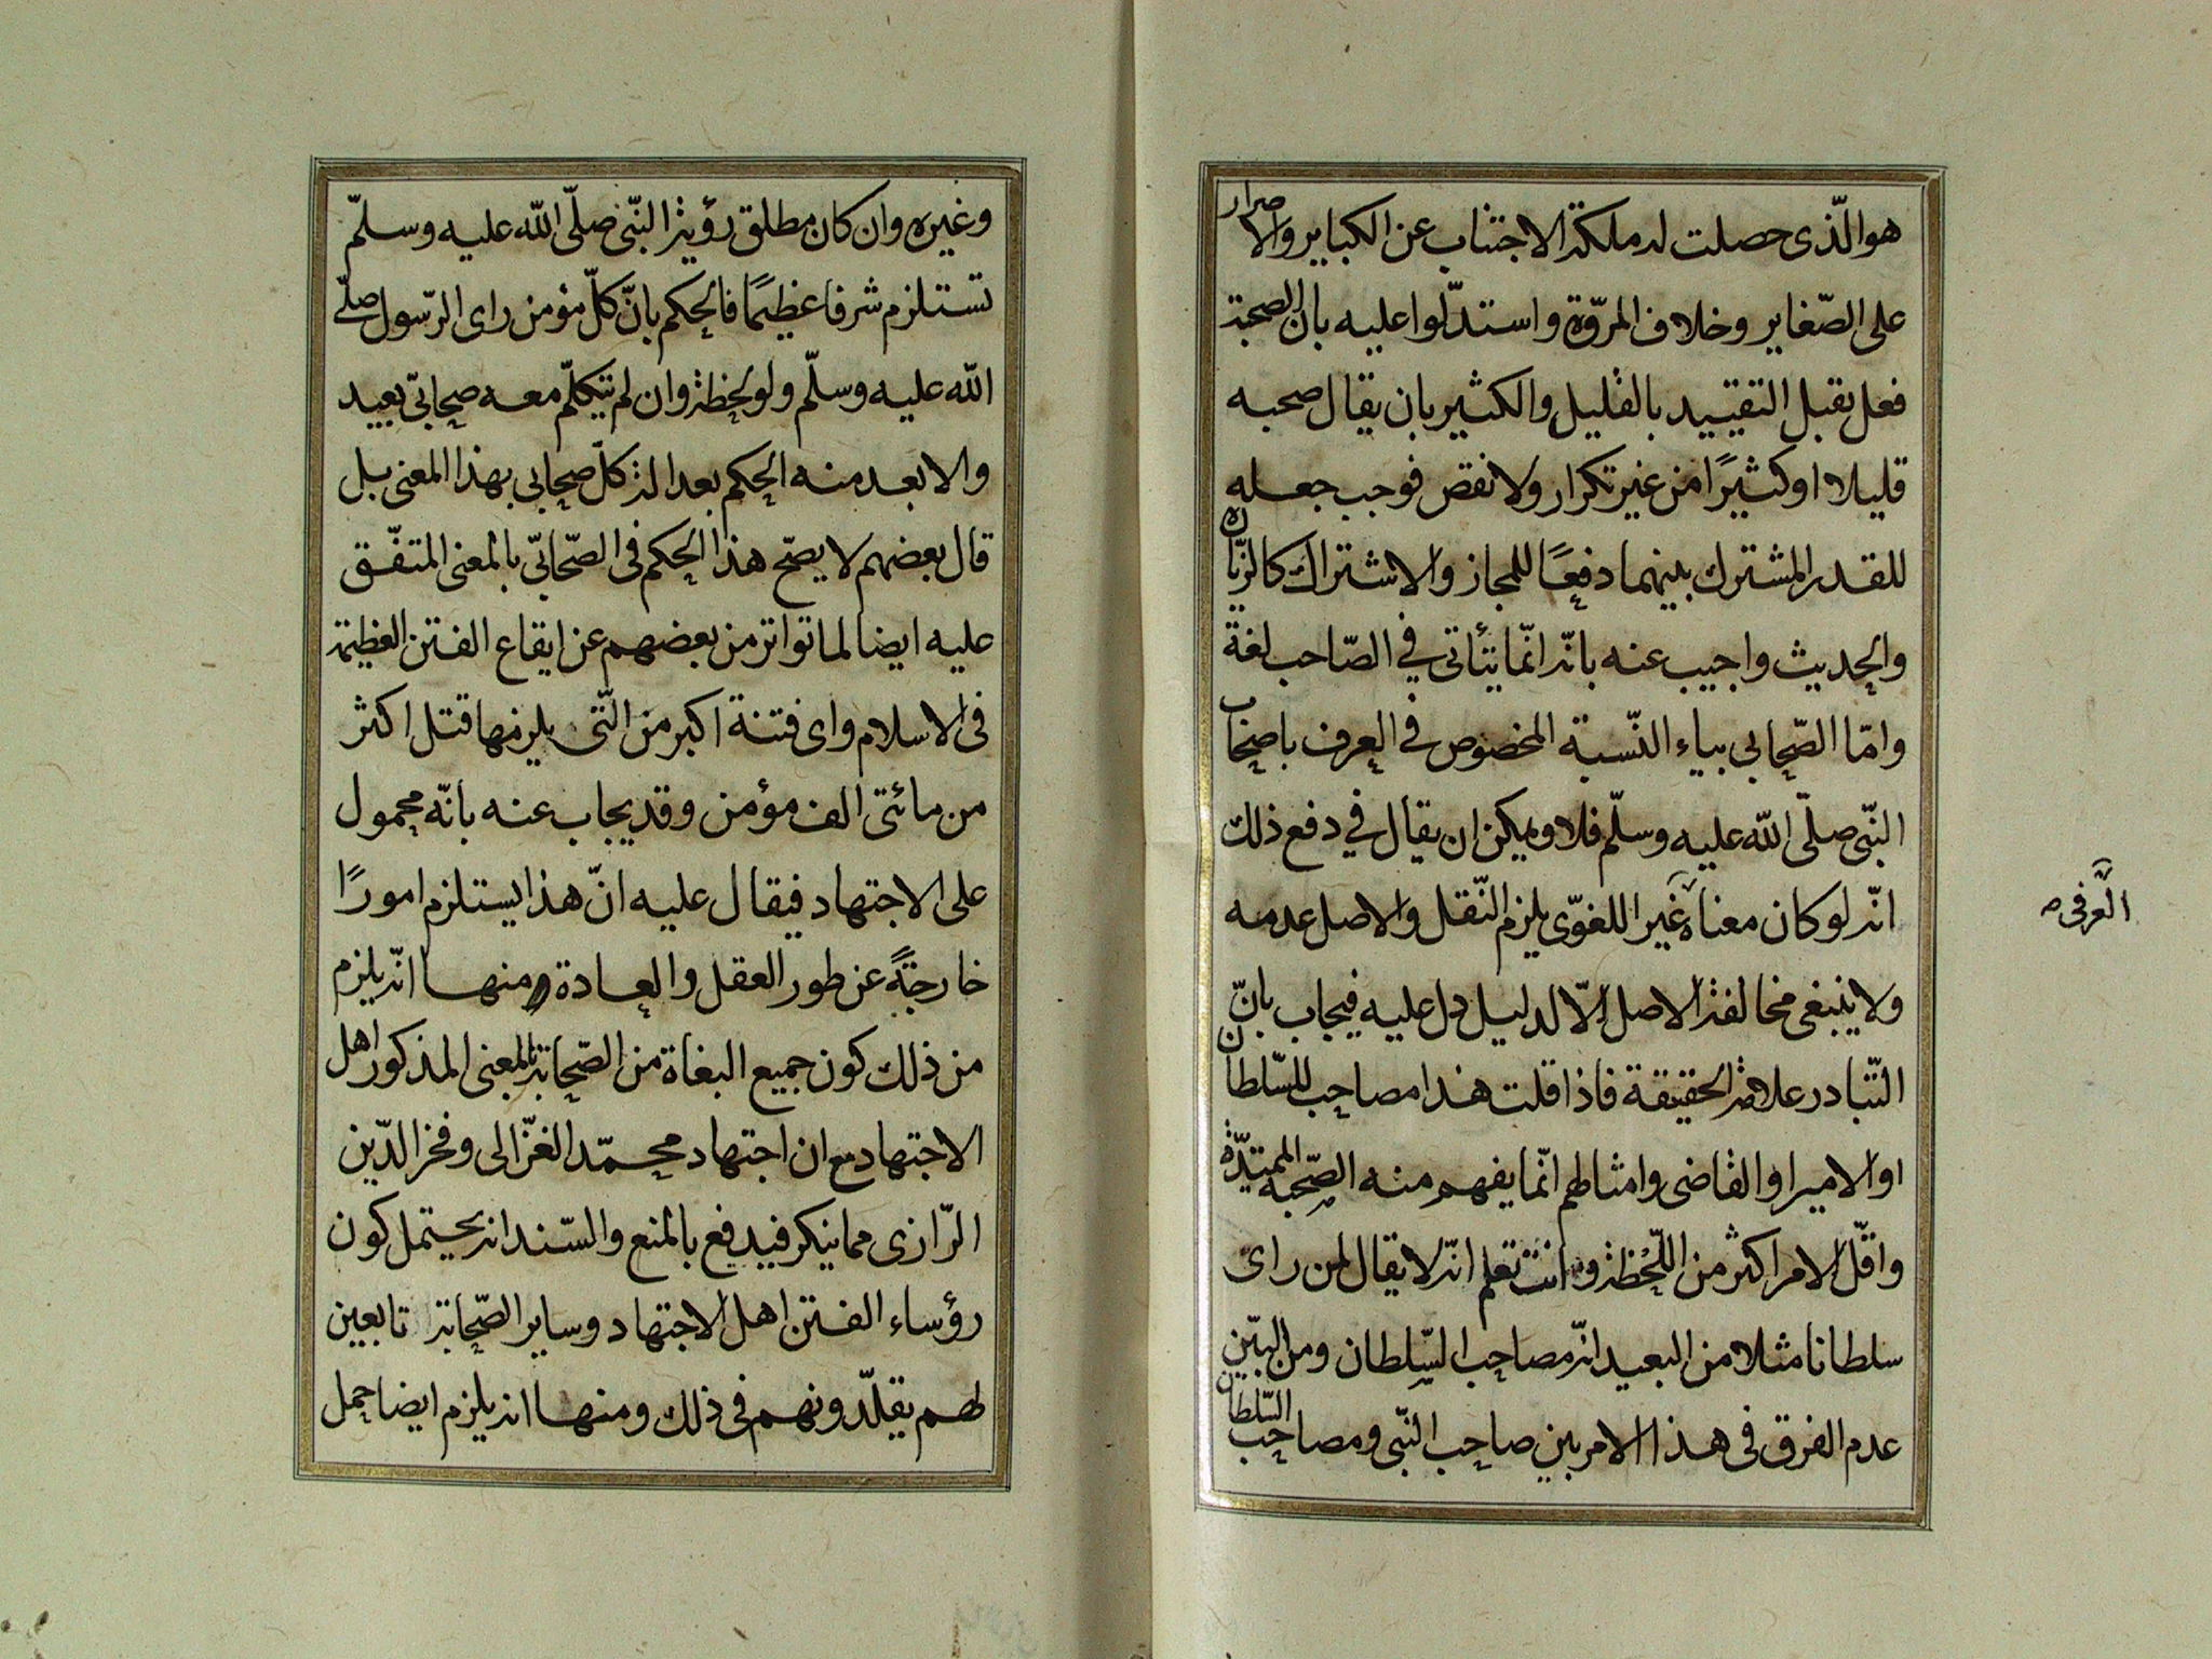 هو الّذى حصلت له ملكة الاجتناب عن الكباير والاصرار
على الصّغاير وخلاف المرّوة واستدلّوا عليه بان الصحبة
فعل يقبل التقييد بالقليل والكثير بان يقال صحبه
قليلا او كثيرًا من غير تكرار ولا نقض فوجب جعله
للقدر المشترك بينهما دفعًا للمجاز والاشتراك كالزيّاره
والحديث واجيب عنه بانّه انّما يتأتى في الصّاحب لغة
وامّا الصّحابى بياء النّسبة المخصوص في العرف باصحاب
النّبى صلّى الله عليه وسلّم فلا ويمكن ان يقال في دفع ذلك
انّه لو كان معناه غير اللغوّى يلزم النّقل والاصل عدمه
العرفى صـ
ولا ينبغى مخالفة الاصل الّا لدليل دل عليه فيجاب بانّ
التّبادر علامة الحقيقة فاذا قلت هذا مصاحب للسّلطان
او الامير او القاضى وامثالهم انّما يفهم منه الصّحبة الممتدّة
واقلّ الامر اكثر من اللّحظة وانت تعلم انّه لا يقال لمن راى
سلطانا مثلا من البعيد انّه مصاحب السّلطان ومن البيّن
عدم الفرق فى هذا الامر بين صاحب النّبى ومصاحب السّلطان
وغيره وان كان مطلق رؤية النّبى صلّى الله عليه وسلّم
تستلزم شرفا عظيمًا فالحكم بانّ كلّ مؤمن راى الرّسول صلّى
الله عليه وسلّم ولو لحظة وان لم يتكلّم معه صحابىّ بعيد
والابعد منه الحكم بعدالة كلّ صحابى بهذا المعنى بل
قال بعضهم لا يصّح هذا الحكم فى الصّحابىّ بالمعنى المتفّق
عليه ايضا لما تواتر من بعضهم عن ايقاع الفتن العظيمة
فى الاسلام واى فتنة اكبر من الّتى يلزمها قتل اكثر
من مائتى الف مؤمن وقد يجاب عنه بانّه محمول
على الاجتهاد فيقال عليه انّ هذا يستلزم امورًا
خارجةً عن طور العقل والعادة ومنها انّه يلزم
من ذلك كون جميع البغاة من الصّحابة بالمعنى المذكور اهل
الاجتهاد مع ان اجتهاد محمّد الغزّالى وفخر الدّين
الرّازى مما ينكر فيدفع بالمنع والسّند انه يحتمل كون
رؤساء الفتن اهل الاجتهاد وساير الصّحابة تابعين
لهم يقلّدونهم فى ذلك ومنها انه يلزم ايضا حمل